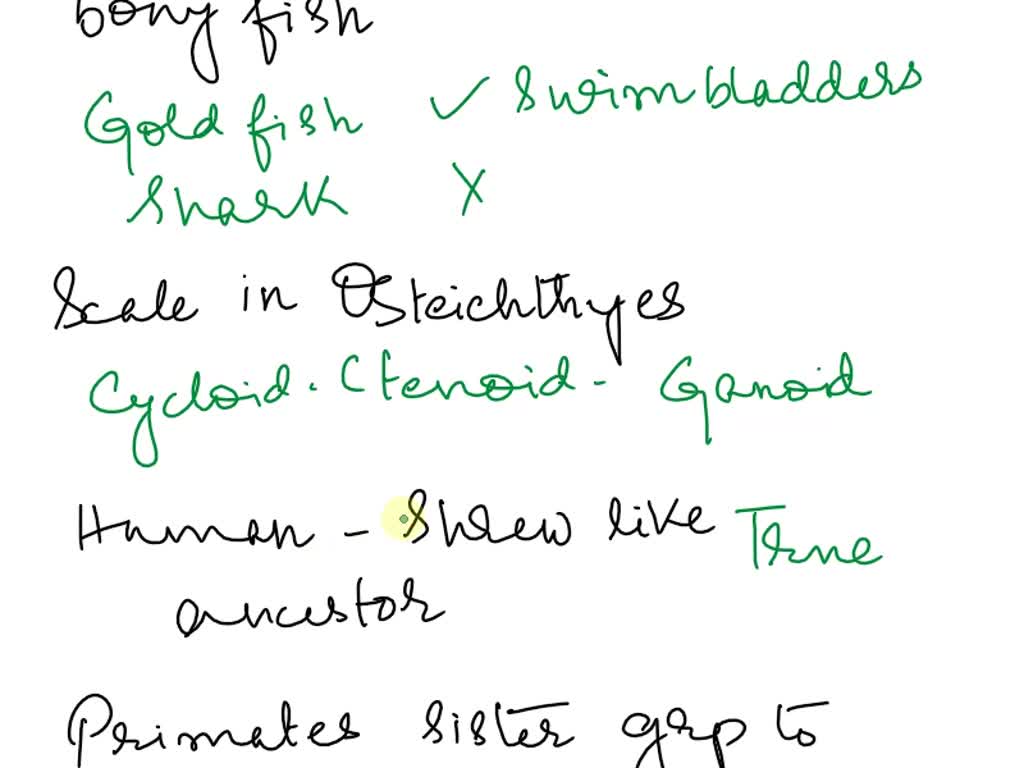 bony fish
Goldfish ✓ Swimbladders
Shark X
Scale in Osteichthyes
Cycloid. Ctenoid - Ganoid
Human - Shrew like True
ancestor
Primates sister grp to